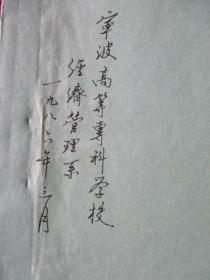 寧波高等專科学校
经濟管理系
一九八六年三月